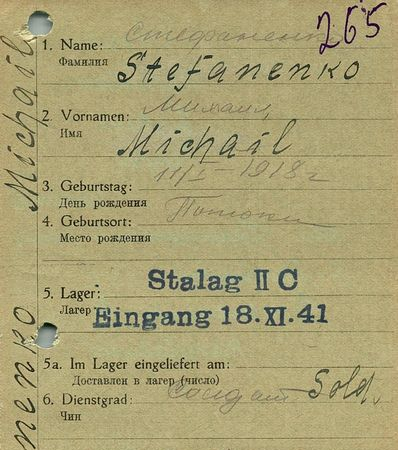 265
Стефаненко
1. Name:
Фамилия
Stefanenko
Михаил
2. Vornamen:
Имя
Michail
11/I - 1918 г
3. Geburtstag:
День рождения
4. Geburtsort:
Место рождения
Потоки
Stalag II C
5. Lager:
Лагерь
Eingang 18.XI.41
5a. Im Lager eingeliefert am:
Доставлен в лагерь (число)
6. Dienstgrad: Солдат Sold.
Чин
nenko Michail